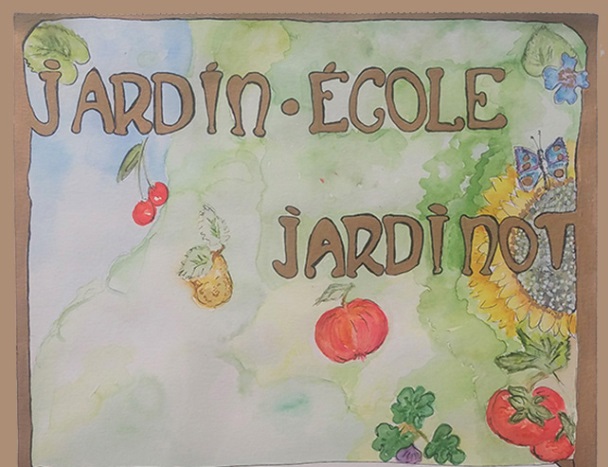 JARDIN·ÉCOLE
JARDINOT